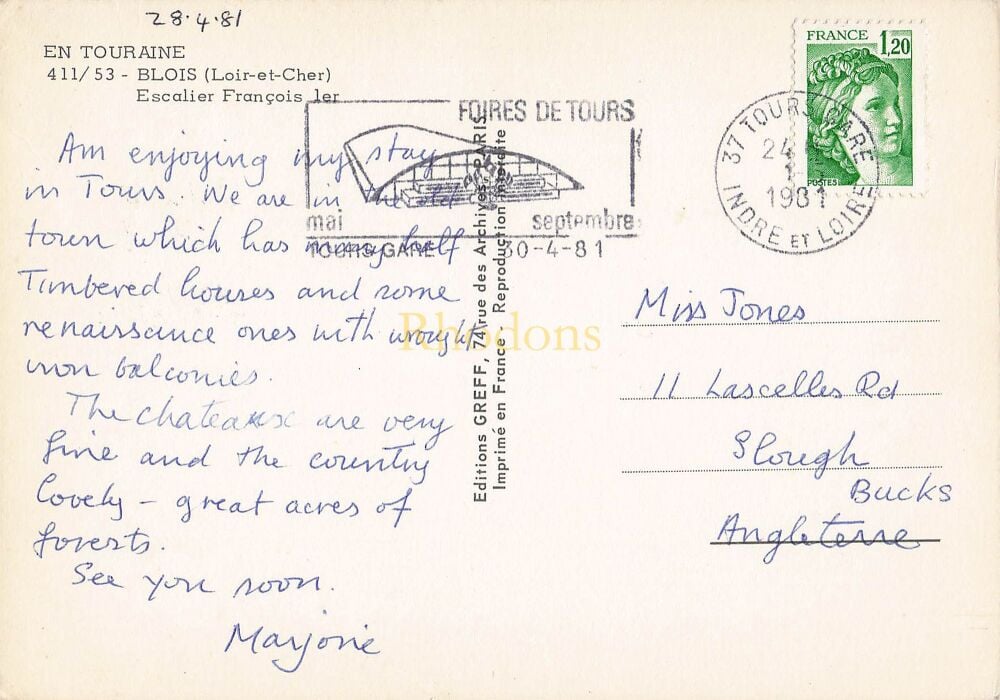 28.4.81
EN TOURAINE
411/53 - BLOIS (Loir-et-Cher)
Escalier François 1er
Am enjoying my stay
in Tours. We are in the old
town which has many half
Timbered houses and some
renaissance ones with wrought
iron balconies.
The chateaux are very
fine and the country
lovely - great acres of
forests.
See you soon.
Marjorie
FOIRES DE TOURS
mai septembre
TOURS GARE 30-4-81
Editions GREFF, 74 rue des Archives, PARIS
Imprimé en France - Reproduction interdite
Rhodons
FRANCE 1,20
POSTES
37 TOURS GARE
1981
INDRE ET LOIRE
Miss Jones
11 Lascelles Rd
Slough
Bucks
Angleterre